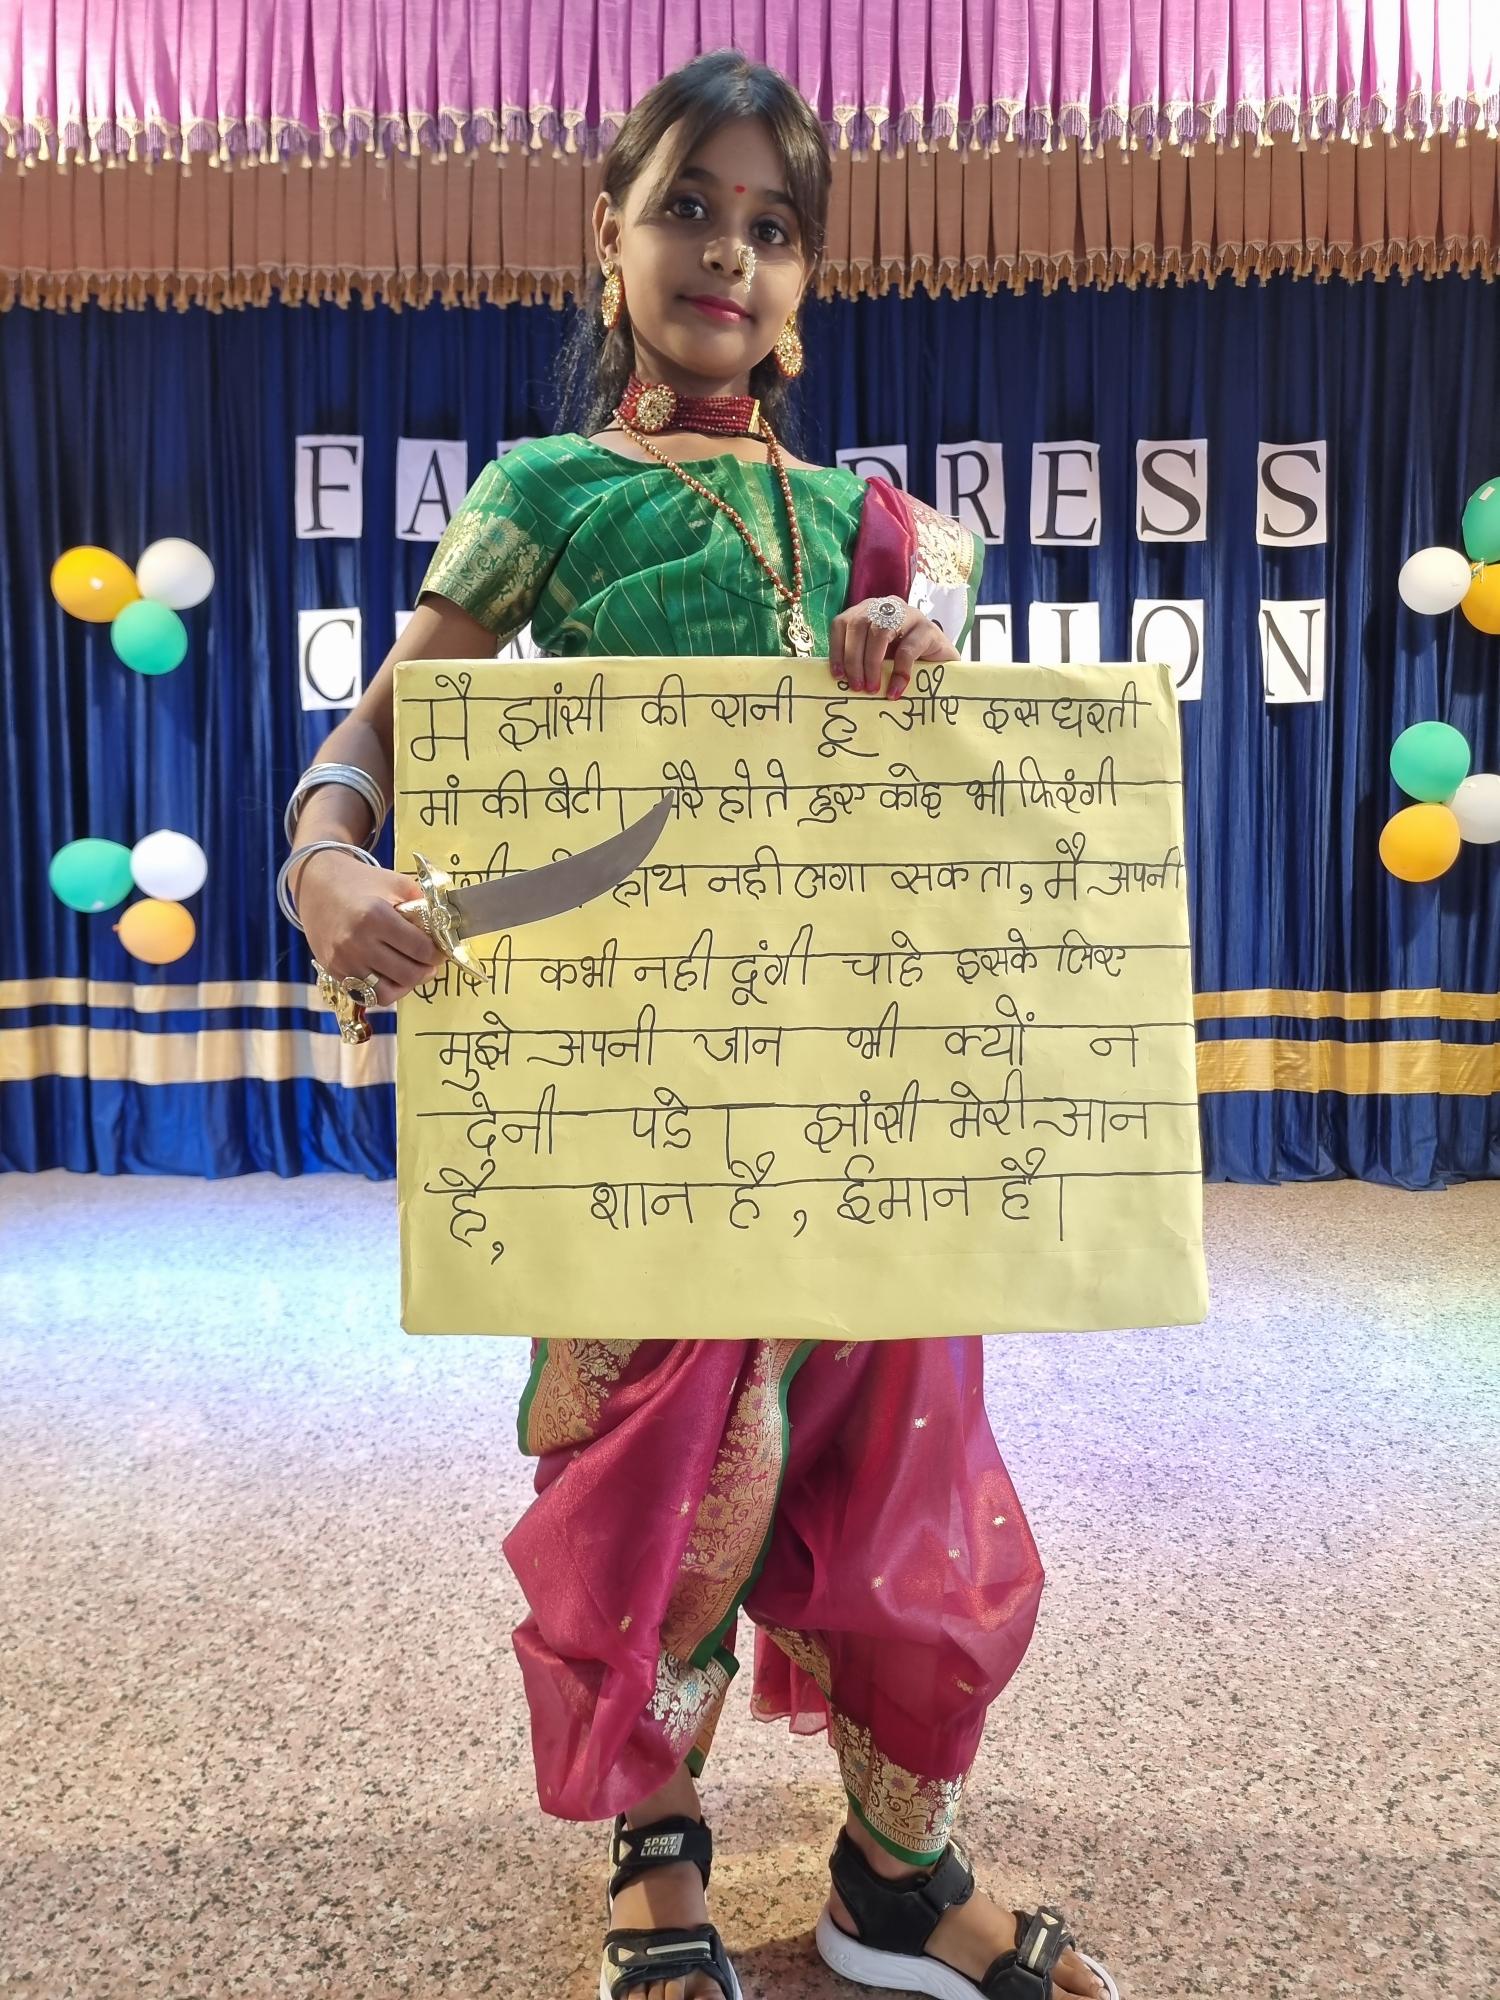 FA DRESS
C TION
मै झांसी की रानी हूं और इस धरती
मां की बेटी। मेरे होते हुए कोई भी फिरंगी
हाथ नही लगा सकता, मै अपनी
झांसी कभी नही दूंगी चाहे इसके लिए
मुझे अपनी जान भी क्यों न
देनी पडे। झांसी मेरी आन
है, शान है, ईमान है।
SPOT
LIGHT